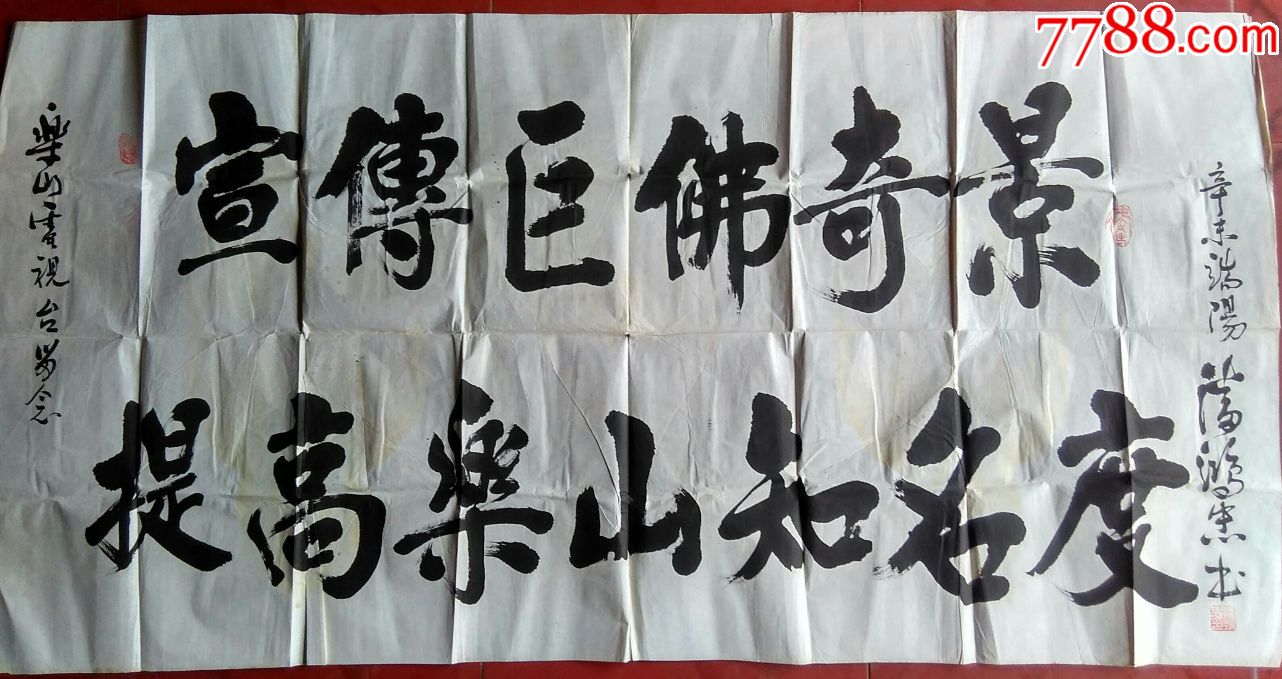 7788.com
樂山電視台留念
宣傳巨佛奇景
提高樂山知名度
辛未端陽 潘鴻忠書